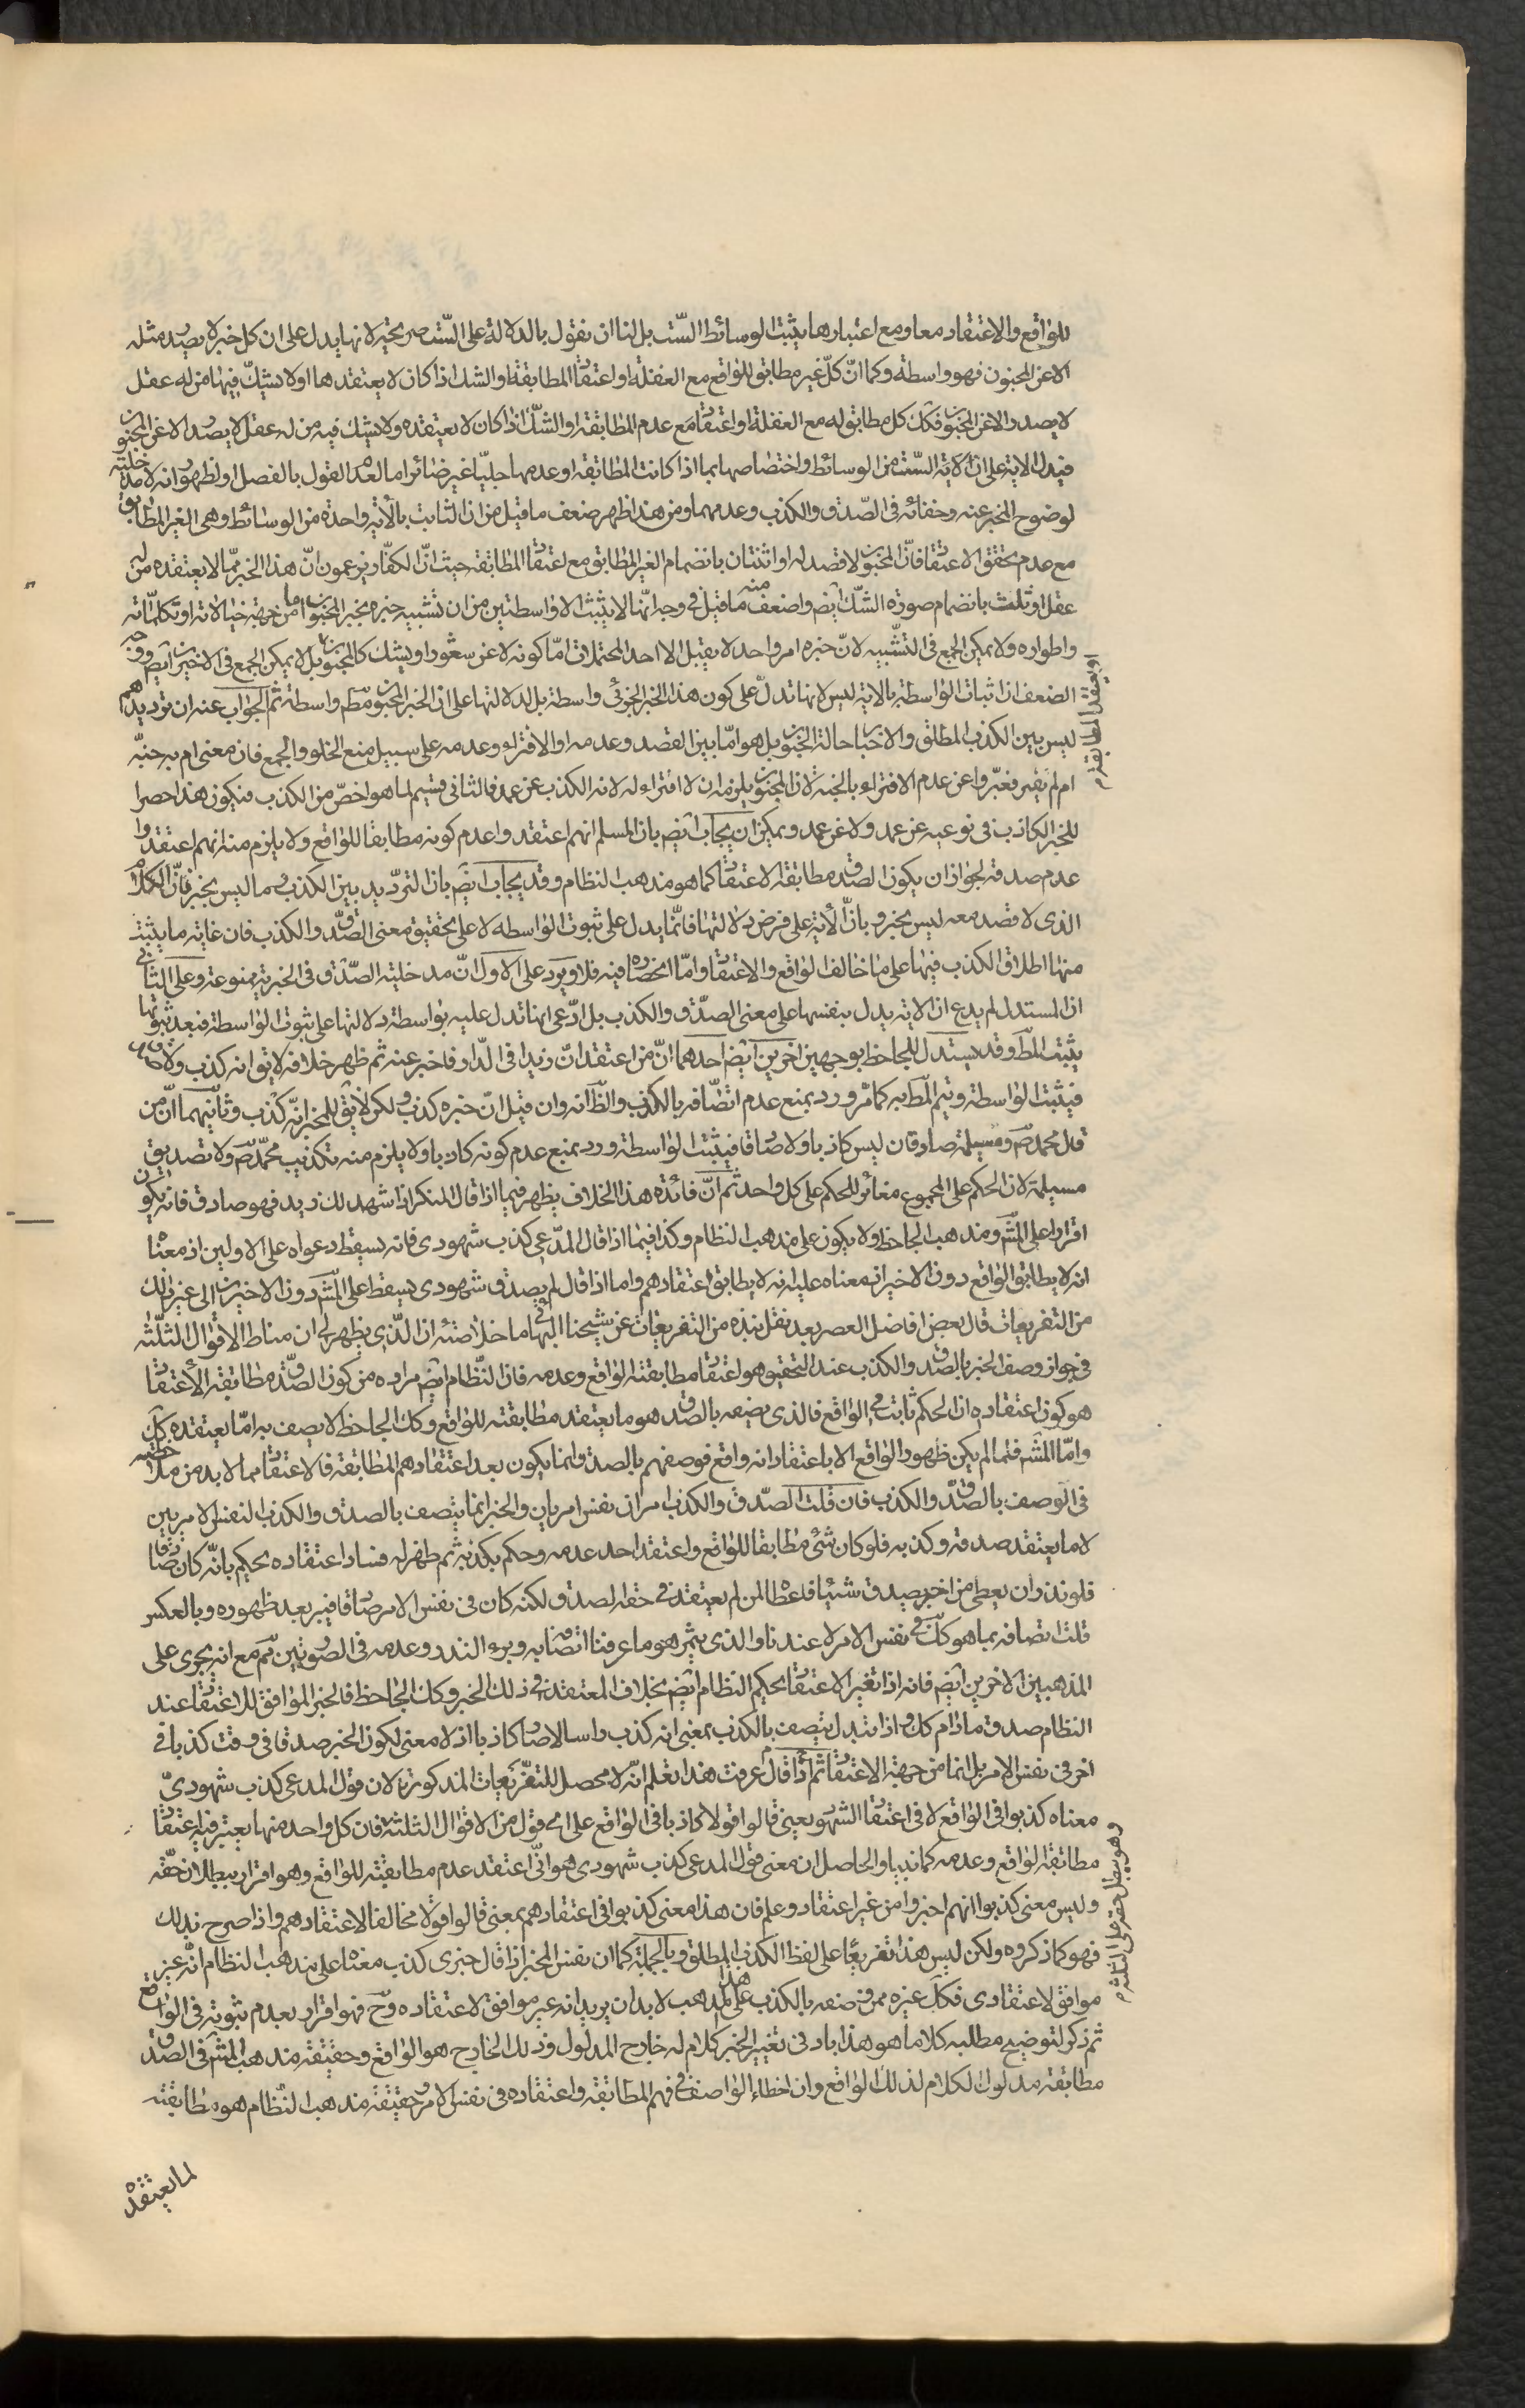 للواقع والاعتقاد معا ومع اعتبارها يثبت الوسائط الست بل لنا ان نقول بالدلالة على الست صريحة لانها يدل على ان كل خبر لا يصدر مثله
الا عن المجنون فهو واسطة وكما ان كل غير مطابق للواقع مع الغفلة او اعتقا المطابقة او الشك اذا كان لا يعتقدها اولا يشك فيها من له عقل
لا يصدر الا عن المجنون فكك كل مطابق له مع الغفلة او اعتقا مع عدم المطابقة او الشك اذا كان لا يعتقده ولا يشك فيه من له عقل لا يصدر الا عن المجنون
فيدل الاية على ان الاية الست من الوسائط واختصاصها بما اذا كانت المطابقة او عدمها جليا غير ضائر اما لعدم القول بالفصل او لظهور انه لا مدخلية
لوضوح المخبر عنه وخفائه فى الصدق والكذب وعدمهما ومن هذا ظهر ضعف ما قيل من ان الثابت بالاية واحدة من الوسائط وهى الغير المطابق
مع عدم تحقق الاعتقا فان المجنون لا قصد له او اثنتان بانضمام الغير المطابق مع اعتقا المطابقة حيث ان الكفار يزعمون ان هذا الخبر مما لا يعتقده من له
عقل او ثلث بانضمام صورة الشك ايضم واضعف منه ما قيل فى وجه انها لا يثبت الا واسطتين من ان تشبيه خبره بخبر المجنون اما من جهة خيالاته او تكلماته
واطواره ولا يمكن الجمع فى التشبيه لان خبره امر واحد لا يقبل الا احد المحتملات اما كونه لا عن شعور او يشك كالمجنون بل لا يمكن الجمع فى الاخيرين ايضم ووجه
الضعف ان اثبات الواسطة بالاية ليس لانها تدل على كون هذا الخبر الجزئى واسطة بل لدلالتها على ان الخبر المجنون مطم واسطة ثم الجواب عنه ان ترديدهم
ليس بين الكذب المطلق والاخبا حالة الجنون بل هو اما بين القصد وعدمه او الافتراء وعدمه على سبيل منع الخلو والجمع فان معنى ام به جنة
ام لم يفتر فعبروا عن عدم الافتراء بالجنة لان المجنون يلزمه ان لا افتراء له لانه الكذب عن عمد فالثانى قسيم لما هو اخص من الكذب فيكون هذا حصرا
للخبر الكاذب فى نوعيه عن عمد ولا عن عمد ويمكن ان يجاب ايضم بان المسلم انهم اعتقدوا عدم كونه مطابقا للواقع ولا يلزم منه انهم اعتقدوا
عدم صدقه لجواز ان يكون الصدق مطابقة الاعتقا كما هو مذهب النظام وقد يجاب ايضم بان الترديد بين الكذب وما ليس بخبر فان الكلام
الذى لا قصد معه ليس بخبر وبان الاية على فرض دلالتها فانما يدل على ثبوت الواسطة لا على تحقيق معنى الصدق والكذب فان غاية ما يثبت
منها اطلاق الكذب فيها على ما خالف الواقع والاعتقا واما انحصاره فيه فلا ويرد على الاول ان مدخلية الصدق فى الخبرية ممنوعة وعلى الثانى
ان المستدل لم يدع ان الاية يدل بنفسها على معنى الصدق والكذب بل ادعى انها تدل عليه بواسطة دلالتها على ثبوت الواسطة فبعد ثبوتها
يثبت المط وقد يستدل للجاحظ بوجهين اخرين ايضم احدهما ان من اعتقد ان زيدا فى الدار فاخبر عنه ثم ظهر خلافه لا يق انه كذب ولا صدق
فيثبت الواسطة ويتم المط به كما مر ورد بمنع عدم اتصافه بالكذب والظ انه وان قيل ان خبره كذب ولكن لا يق للمخبر انه كذب وثانيهما ان من
قال محمد ص ومسيلمة صادقان ليس كاذبا ولا صادقا فيثبت الواسطة ورد بمنع عدم كونه كاذبا ولا يلزم منه تكذيب محمد ص ولا تصديق
مسيلمة لان الحكم على المجموع مغائر للحكم على كل واحد ثم ان فائدة هذا الخلاف يظهر فيما اذا قال المنكر اذا شهد لك زيد فهو صادق فانه يكون
اقرارا على المشم ومذهب الجاحظ ولا يكون على مذهب النظام وكذا فيما اذا قال المدعى كذب شهودى فانه يسقط دعواه على الاولين اذ معناه
انه لا يطابق الواقع دون الاخير اذ معناه عليه انه لا يطابق اعتقادهم واما اذا قال لم يصدق شهودى يسقط على المشم دون الاخيرين الى غير ذلك
من التفريعات قال بعض افاضل العصر بعد نقل نبذة من التفريعات عن شيخنا البهائى ما خلاصته ان الذى يظهر لى ان مناط الاقوال الثلثة
فى جواز وصف الخبر بالصدق والكذب عند التحقيق هو اعتقا مطابقته الواقع وعدمه فان النظام ايضم مراده من كون الصدق مطابقة الاعتقا
هو كون اعتقاده ان الحكم ثابت فى الواقع فالذى يصفه بالصدق هو ما يعتقد مطابقته للواقع وكك الجاحظ لا يصف به اما يعتقده كك
واما المشم فلما لم يكن ظهور الواقع الا باعتقاد انه واقع فوصفهم بالصدق انما يكون بعد اعتقادهم المطابقة فالاعتقا مما لا بد من مدخليته
فى الوصف بالصدق والكذب فان قلت الصدق والكذب امران نفس امريان والخبر انما يتصف بالصدق والكذب النفس الامريين
لا ما يعتقد صدقه وكذبه فلو كان شئ مطابقا للواقع واعتقد احد عدمه وحكم بكذبه ثم ظهر له فساد اعتقاده يحكم بانه كان صادقا
فلو نذر ان يعطى من اخبر بصدق شيئا فاعطا لمن لم يعتقد فى حقه الصدق لكنه كان فى نفس الامر صادقا فيبر بعد ظهوره وبالعكس
قلت اتصافه بما هو كك فى نفس الامر لا عندنا والذى يثمر هو ما عرفنا اتصافه به وبرء النذر وعدمه فى الصورتين ثم مع انه يجرى على
المذهبين الاخرين ايضم فانه اذا تغير الاعتقا يحكم النظام ايضم بخلاف المعتقد فى ذلك الخبر وكك الجاحظ فالخبر الموافق للاعتقا عند
النظام صدق ما دام كك واذا تبدل يتصف بالكذب بمعنى انه كذب راسا لا صار كاذبا اذ لا معنى لكون الخبر صدقا فى وقت كذبا فى
اخر فى نفس الامر بل انما من جهة الاعتقا ثم قال اذا عرفت هذا تعلم انه لا محصل للتفريعات المذكورة لان قول المدعى كذب شهودى
معناه كذبوا فى الواقع لا فى اعتقا الشهود يعنى قالوا قولا كاذبا فى الواقع على اى قول من الاقوال الثلثة فان كل واحد منها يعتبر فيه اعتقا
مطابقة الواقع وعدمه كما بينا والحاصل ان معنى قول المدعى كذب شهودى هو انى اعتقد عدم مطابقته للواقع وهو اقرار ببطلان حقه
وليس معنى كذبوا انهم اخبروا من غير اعتقاد وعلم فان هذا معنى كذبوا فى اعتقادهم بمعنى قالوا قولا مخالفا لاعتقادهم واذا صرح بذلك
فهو كما ذكروه ولكن ليس هذا تفريعا على لفظ الكذب المطلق وبالجملة كما ان نفس المخبر اذا قال خبرى كذب معناه على مذهب النظام انه غير
موافق لاعتقادى فكك غيره ممن وصفه بالكذب على هذا المذهب لا بد ان يريد انه غير موافق لاعتقاده وح فهو اقرار بعدم ثبوته فى الواقع
ثم ذكر لتوضيح مطلبه كلاما هو هذا بادنى تغيير الخبر كلام له خارج المدلول وذلك الخارج هو الواقع وحقيقة مذهب المشم فى الصدق
مطابقة مدلول الكلام لذلك الواقع وان اخطاء الواصف فى فهم المطابقة واعتقاده فى نفس الامر وحقيقة مذهب النظام هو مطابقته
لما يعتقده
او يعتقد المطابقة م
وهو يبطل حقه على الثلثة م